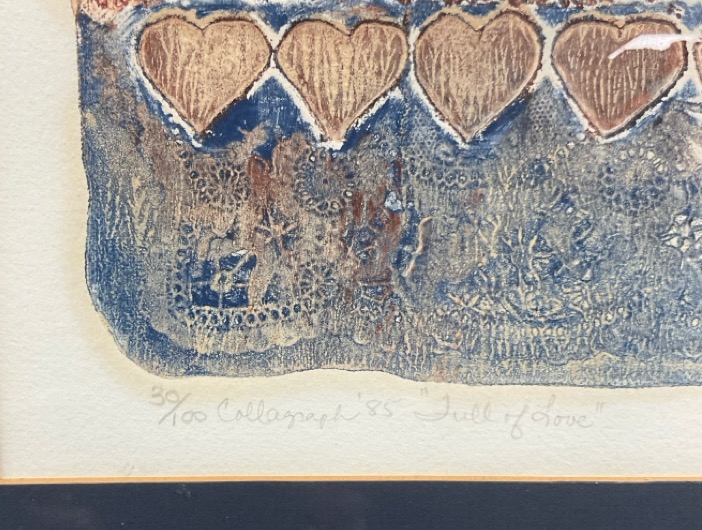 30/100 Collagraph '85 "Full of Love"